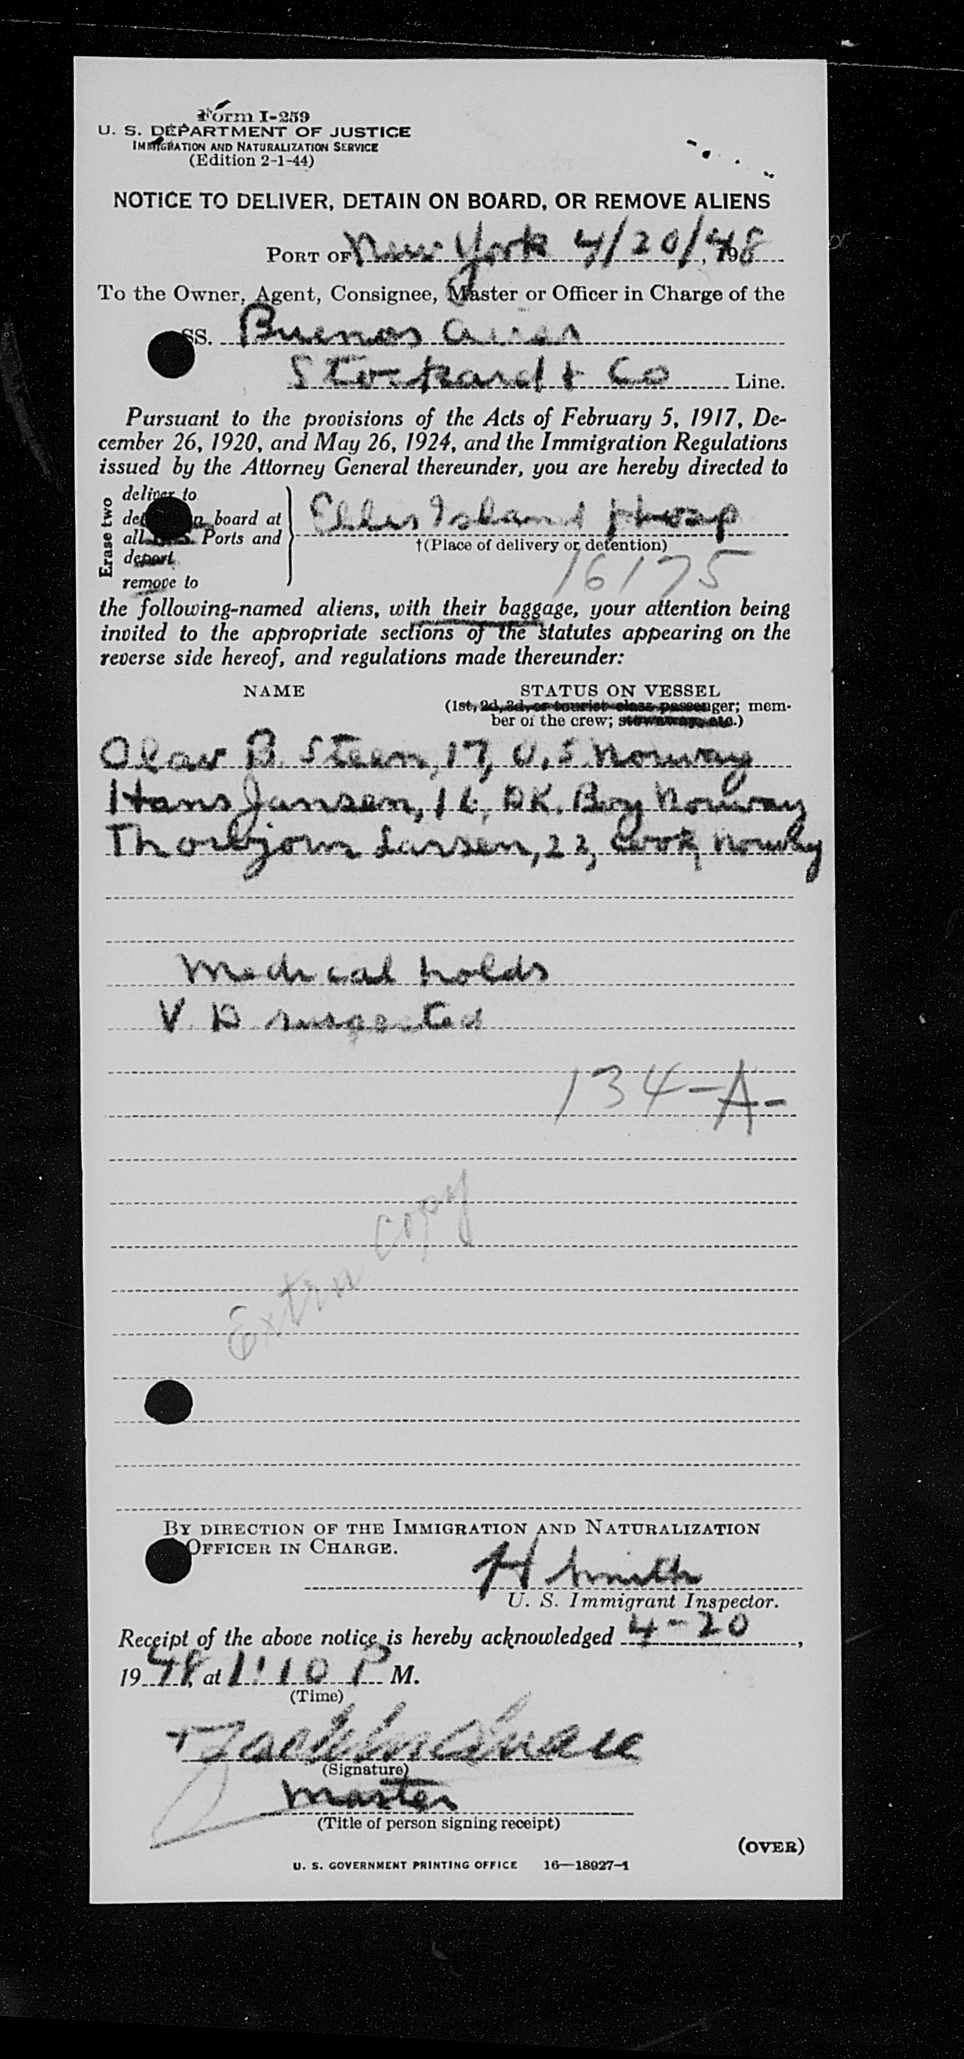 Form I-259
U. S. DEPARTMENT OF JUSTICE
IMMIGRATION AND NATURALIZATION SERVICE
(Edition 2-1-44)
NOTICE TO DELIVER, DETAIN ON BOARD, OR REMOVE ALIENS
PORT OF New York 4/20/48, 19
To the Owner, Agent, Consignee, Master or Officer in Charge of the
SS. Buenos Aires
Stockard & Co Line.
Pursuant to the provisions of the Acts of February 5, 1917, De-
cember 26, 1920, and May 26, 1924, and the Immigration Regulations
issued by the Attorney General thereunder, you are hereby directed to
Erase two
deliver to
board at
all Ports and
depart
remove to
Ellis Island Hosp
†(Place of delivery or detention)
16175
the following-named aliens, with their baggage, your attention being
invited to the appropriate sections of the statutes appearing on the
reverse side hereof, and regulations made thereunder:
NAME STATUS ON VESSEL
(1st, 2d, 3d, or tourist class passenger; mem-
ber of the crew; stowaway, etc.)
Olav B. Steen, 17, O.S. Norway
Hans Jansen, 16, DK. Boy Norway
Thorbjorn Larsen, 22, Cook, Norway
Medical holds
V. D suspected
134-A-
Extra Copy
BY DIRECTION OF THE IMMIGRATION AND NATURALIZATION
OFFICER IN CHARGE.
H Smith
U. S. Immigrant Inspector.
Receipt of the above notice is hereby acknowledged 4-20,
1948, at 1:10 P M.
(Time)
(Signature)
Master
(Title of person signing receipt)
(OVER)
U. S. GOVERNMENT PRINTING OFFICE 16—18927-1